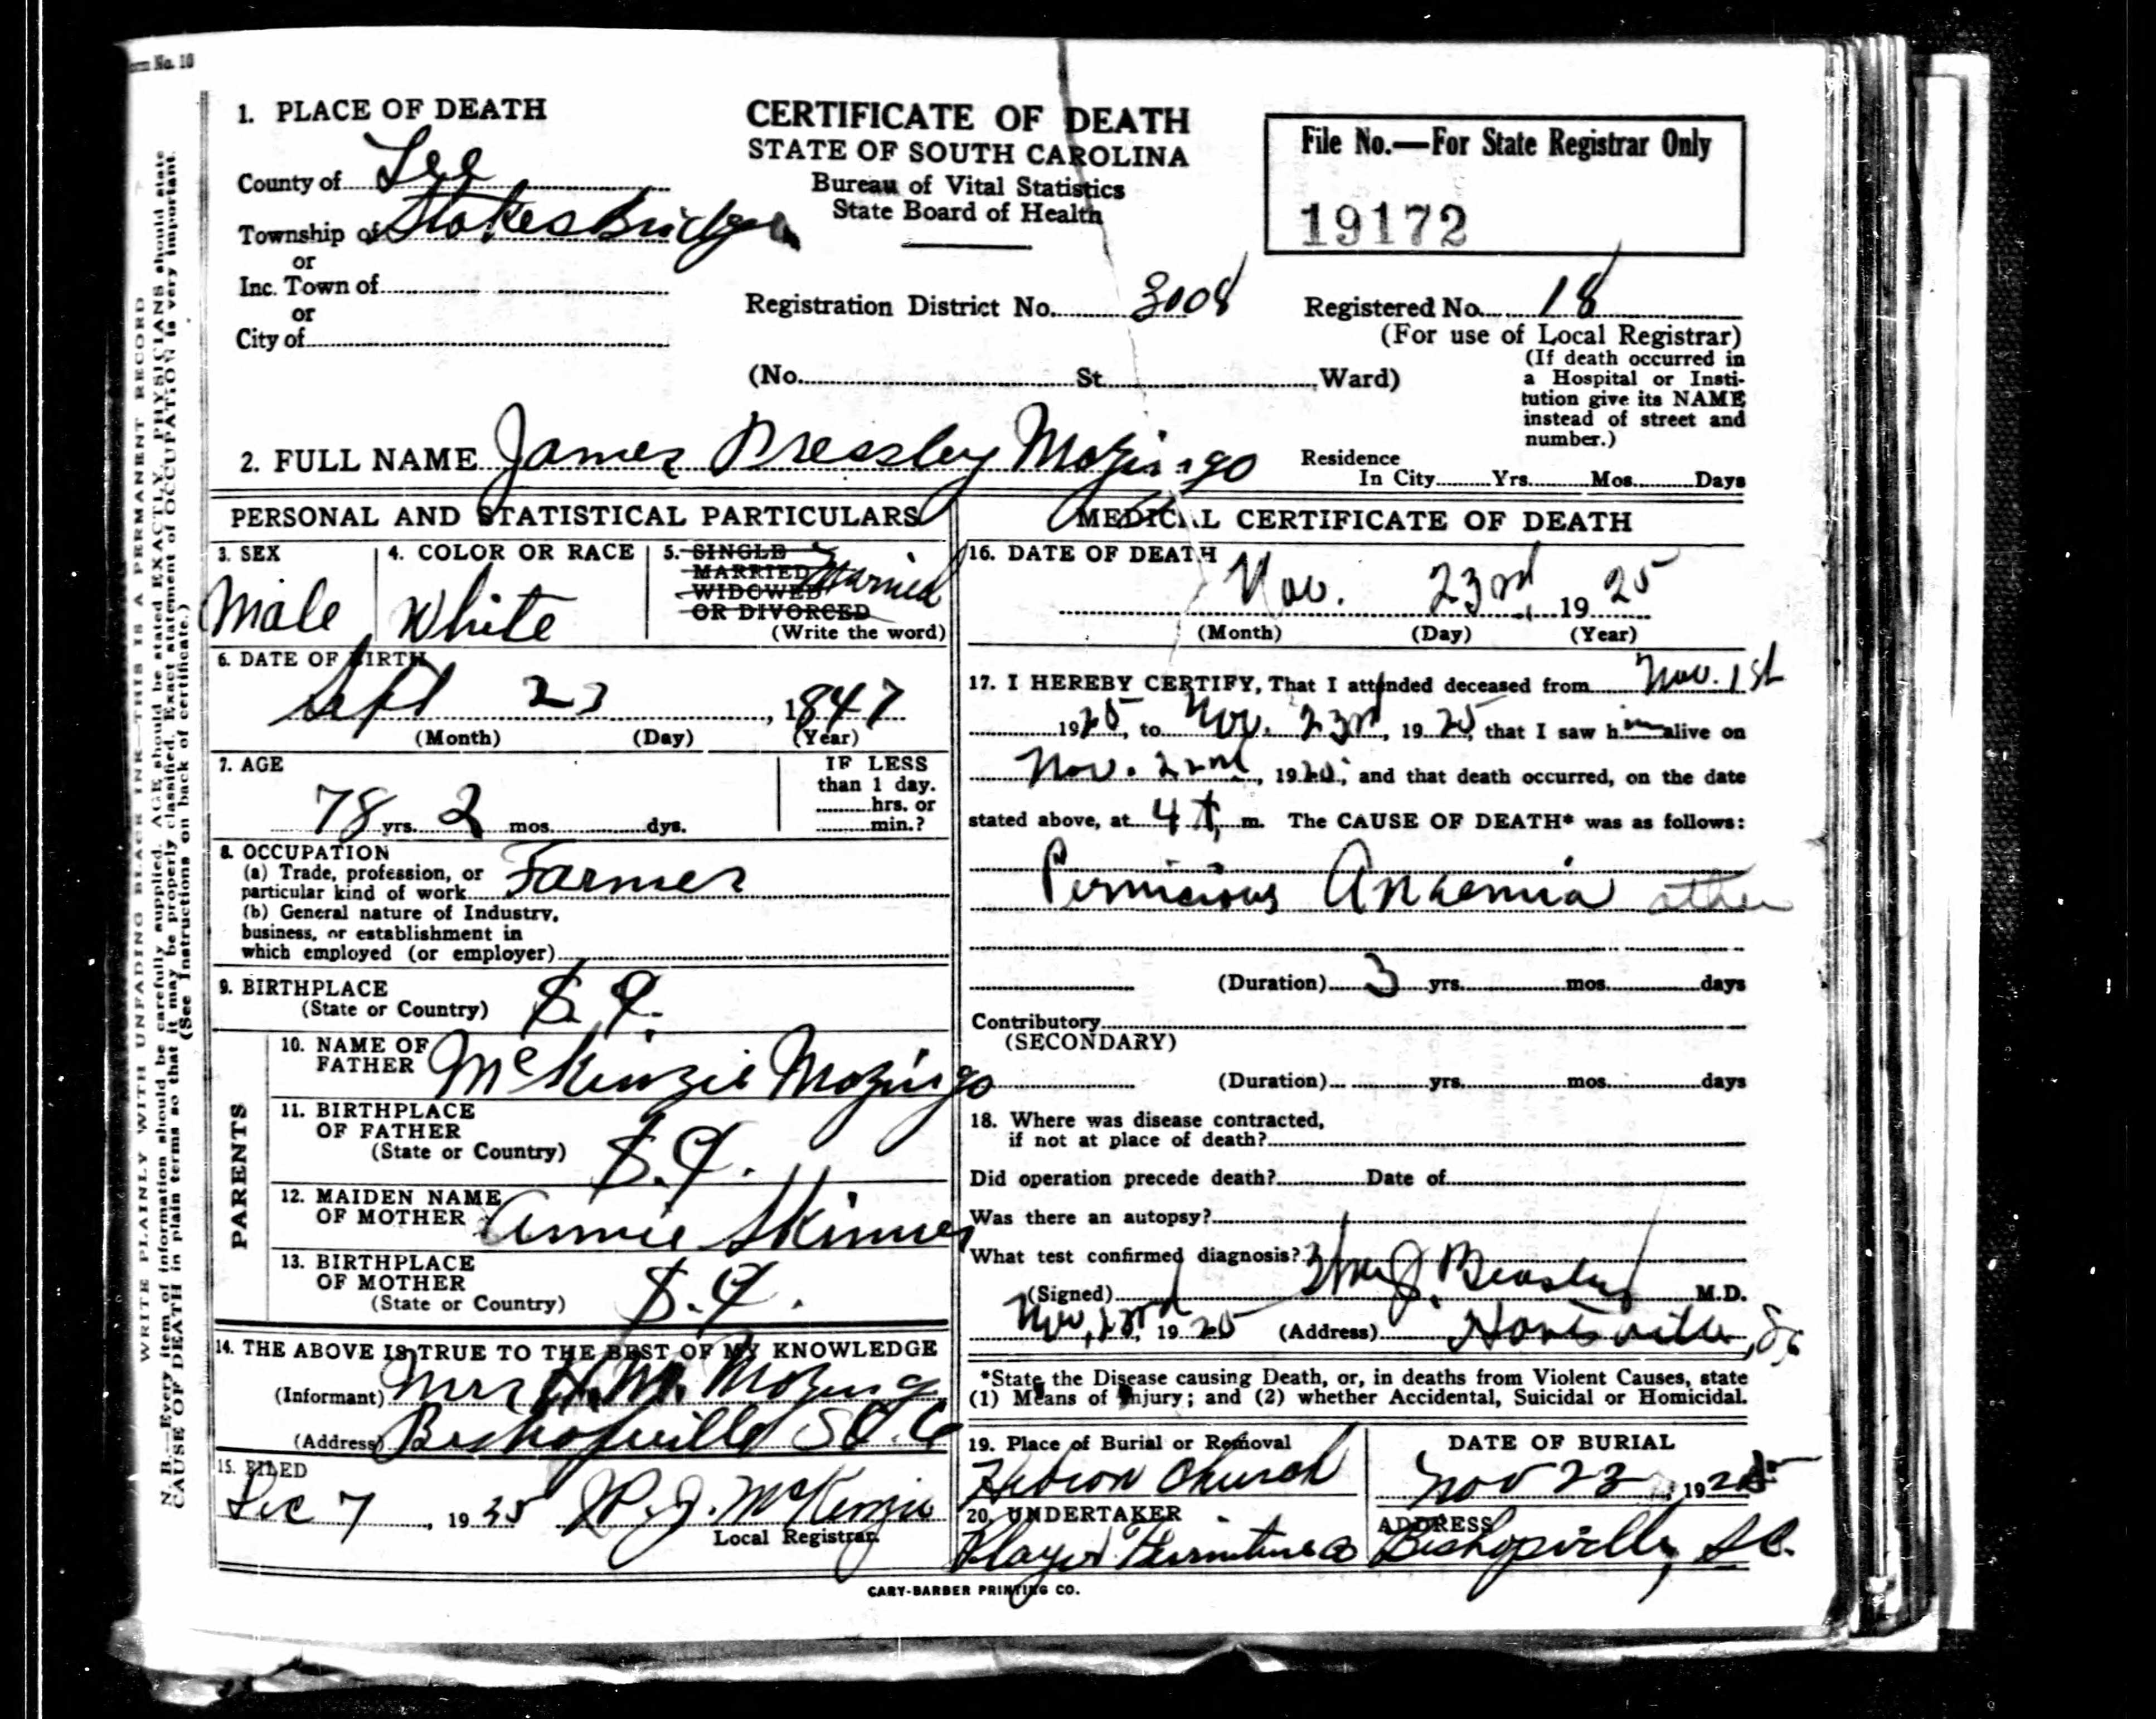 Form No. 10
1. PLACE OF DEATH
County of Lee
Township of Stokes Bridge
or
Inc. Town of
or
City of
CERTIFICATE OF DEATH
STATE OF SOUTH CAROLINA
Bureau of Vital Statistics
State Board of Health
File No.—For State Registrar Only
19172
Registration District No. 3008
Registered No. 18
(For use of Local Registrar)
(No. St. Ward)
(If death occurred in
a Hospital or Insti-
tution give its NAME
instead of street and
number.)
2. FULL NAME James Pressley Mozingo
Residence
In City Yrs. Mos. Days
PERSONAL AND STATISTICAL PARTICULARS
3. SEX
Male
4. COLOR OR RACE
White
5. SINGLE
MARRIED Married
WIDOWED
OR DIVORCED
(Write the word)
6. DATE OF BIRTH
Sept 23, 1847
(Month) (Day) (Year)
7. AGE
78 yrs. 2 mos. dys.
IF LESS
than 1 day.
hrs. or
min.?
8. OCCUPATION
(a) Trade, profession, or
particular kind of work Farmer
(b) General nature of Industry,
business, or establishment in
which employed (or employer)
9. BIRTHPLACE
(State or Country) S. C.
PARENTS
10. NAME OF
FATHER McKinzie Mozingo
11. BIRTHPLACE
OF FATHER
(State or Country) S. C.
12. MAIDEN NAME
OF MOTHER Annie Skinner
13. BIRTHPLACE
OF MOTHER
(State or Country) S. C.
14. THE ABOVE IS TRUE TO THE BEST OF MY KNOWLEDGE
(Informant) Mrs H. M. Mozingo
(Address) Bishopville S. C.
15. FILED
Dec 7, 1925 McKenzie
Local Registrar.
MEDICAL CERTIFICATE OF DEATH
16. DATE OF DEATH
Nov. 23rd, 1925
(Month) (Day) (Year)
17. I HEREBY CERTIFY, That I attended deceased from Nov. 1st
1925, to Nov. 23rd, 1925, that I saw him alive on
Nov. 22nd, 1925; and that death occurred, on the date
stated above, at 4 m. The CAUSE OF DEATH* was as follows:
Pernicious Anaemia other
(Duration) 3 yrs. mos. days
Contributory
(SECONDARY)
(Duration) yrs. mos. days
18. Where was disease contracted,
if not at place of death?
Did operation precede death? Date of
Was there an autopsy?
What test confirmed diagnosis?
(Signed) J. Beasley M.D.
Nov, 23rd, 1925 (Address) Hartsville, S.C.
*State the Disease causing Death, or, in deaths from Violent Causes, state
(1) Means of Injury; and (2) whether Accidental, Suicidal or Homicidal.
19. Place of Burial or Removal
Hebron Church
DATE OF BURIAL
Nov 23, 1925
20. UNDERTAKER
Furniture Co
ADDRESS
Bishopville, S.C.
CARY-BARBER PRINTING CO.
WRITE PLAINLY WITH UNFADING BLACK INK—THIS IS A PERMANENT RECORD
N. B.—Every item of information should be carefully supplied. AGE should be stated EXACTLY. PHYSICIANS should state
CAUSE OF DEATH in plain terms so that it may be properly classified. Exact statement of OCCUPATION is very important.
(See Instructions on back of certificate.)